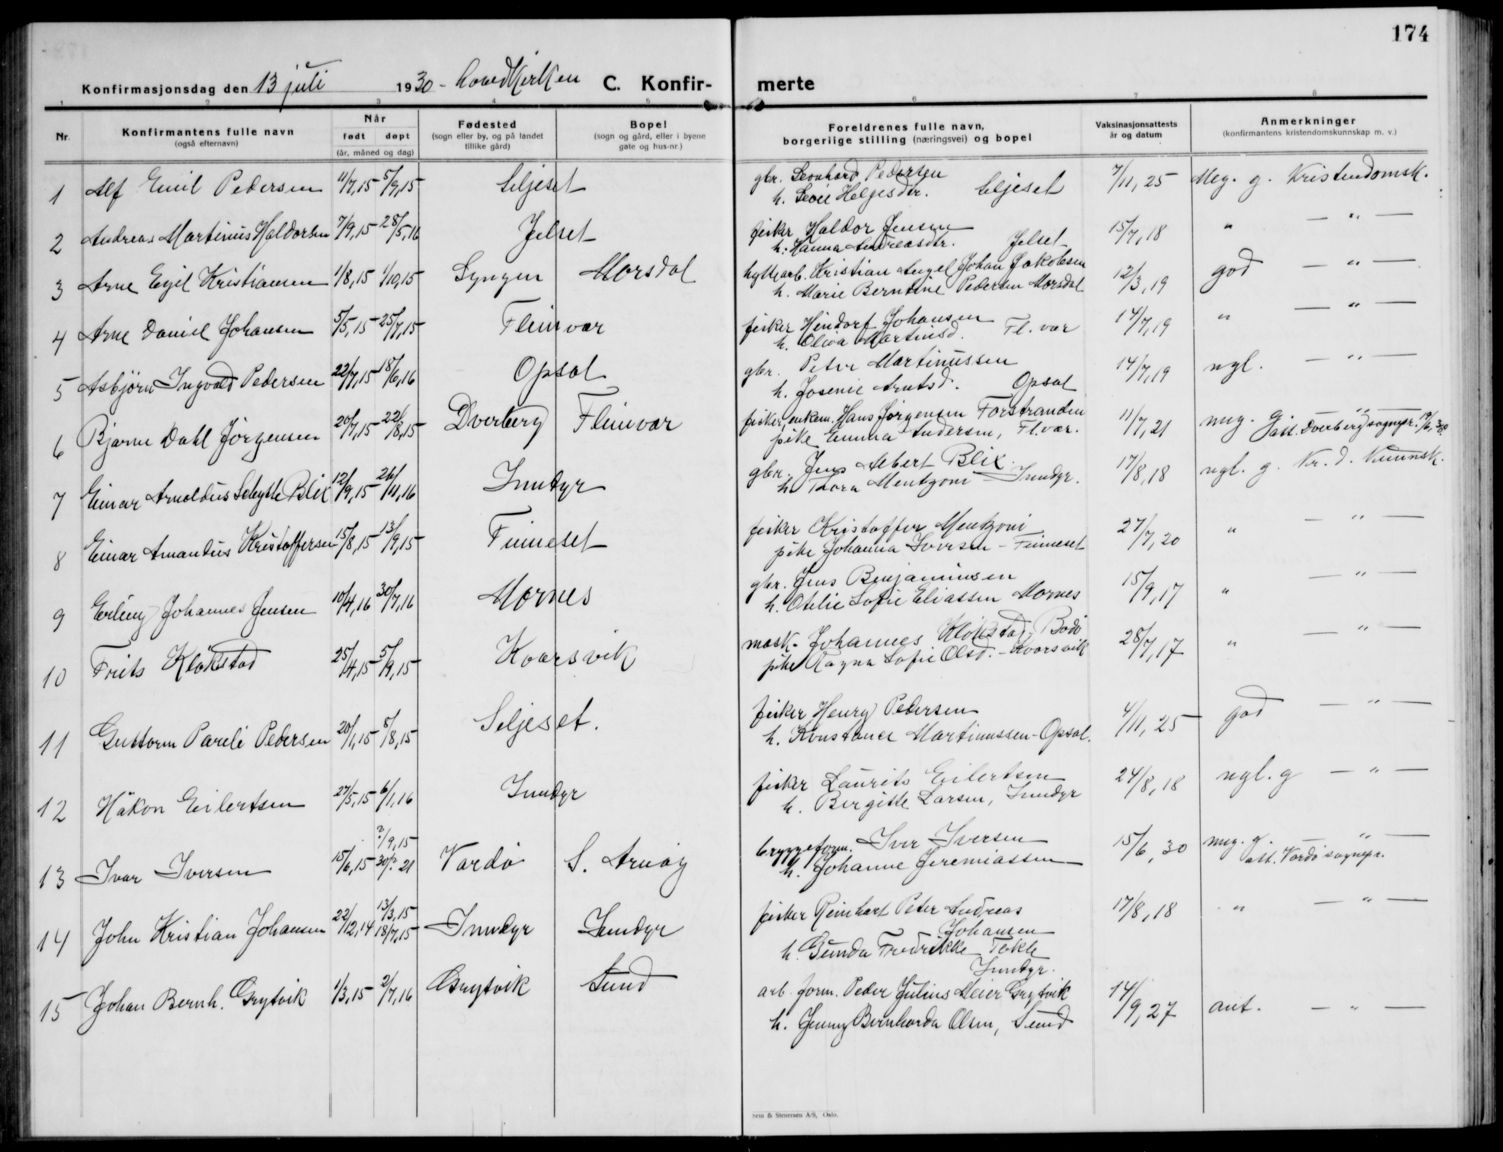 174
Konfirmasjonsdag den 13 juli 1930 - hovedkirken C. Konfir- merte
1 2 3 4 5 6 7 8
Nr. Konfirmantens fulle navn (også efternavn) Når født døpt (år, måned og dag) Fødested (sogn eller by, og på landet tillike gård) Bopel (sogn og gård, eller i byene gate og hus-nr.) Foreldrenes fulle navn, borgerlige stilling (næringsvei) og bopel Vaksinasjonsattests år og datum Anmerkninger (konfirmantens kristendomskunnskap m. v.)
1 Alf Emil Pedersen 11/7,15 5/9,15 Seljeset gbr. Leonhard Pedersen 7/11,25 Meg. g. Kristendomsk.
h. Lovie Helgesdtr. Seljeset
2 Andreas Martinius Haldorsen 7/9,15 28/5,16 Jelset fisker Haldor Jensen 15/7,18 " — " —
h. Hanna Andreasdtr. Jelset
3 Arne Egil Kristiansen 1/8,15 1/10,15 Lyngen Morsdal hytte arb. Kristian Angel Johan Jakobsen 12/3,19 god — " —
h. Marie Berntine Pedersen Morsdal
4 Arne Daniel Johansen 5/5,15 25/7,15 Fleinvær fisker Hindorf Johansen 14/7,19 " — " —
h. Olva Martinsd. Fl. vær
5 Asbjørn Ingvald Pedersen 22/7,15 18/6,16 Opsal gbr. Peter Martinussen 14/7,19 ngl. — " —
h. Josenie Arntsd. Opsal
6 Bjarne Dahl Jørgensen 20/7,15 22/8,15 Dverberg Fleinvær fisker, enkem. Hans Jørgensen Forstranden 11/7,21 meg. g. — " —
pike Emma Andersen, Fl.vær. att. Dverberg sognepr.
7 Einar Arnoldus Schytte Blix 12/9,15 26/11,16 Inndyr gbr. Jens Albert Blix 17/8,18 ngl. g. Kr. d. kunnsk.
h. Thora Mentzoni Inndyr.
8 Einar Amandus Kristoffersen 15/8,15 13/9,15 Finneset fisker Kristoffer Mentzoni 27/7,20 " — " —
pike Johanna Iversen - Finneset
9 Erling Johannes Jensen 10/4,16 30/7,16 Mørnes gbr. Jens Benjaminsen 15/9,17 " — " —
h. Otelie Sofie Eliassen Mornes
10 Frits Klokstad 25/4,15 5/9,15 Kvarsvik mask. Johannes Klokstad, Bodø 28/7,17 " — " —
pike Ragna Sofie Olsd. - Kvarsvik
11 Guttorm Pareli Pedersen 20/1,15 8/8,15 Seljeset. fisker Henry Pedersen 4/11,25 god — " —
h. Konstance Martinussen - Opsal.
12 Håkon Eilertsen 27/5,15 6/1,16 Inndyr fisker Laurits Eilertsen 24/8,18 ngl. g — " —
h. Birgitte Larsen, Inndyr
?/9,15
13 Ivar Iversen 15/6,15 30/?21 Vardø S. Arnøy bryggeform. Iver Iversen 15/6,30 meg. g. — " —
h. Johanne Jeremiassen att. Vardø sognepr.
13/3,15
14 John Kristian Johansen 22/12,14 18/7,15 Inndyr Inndyr fisker Reinhart Peter Andreas 17/8,18 " — " —
Johansen
h. Gunda Fredrikke Tokle
Inndyr.
15 Johan Bernh. Grytvik 1/3,15 2/7,16 Grytvik Sund arb. form. Peder Julius Meier Grytvik 14/9,27 ant. — " —
h. Jenny Bernharda Olsen, Sund
Sem & Stenersen A/S, Oslo.